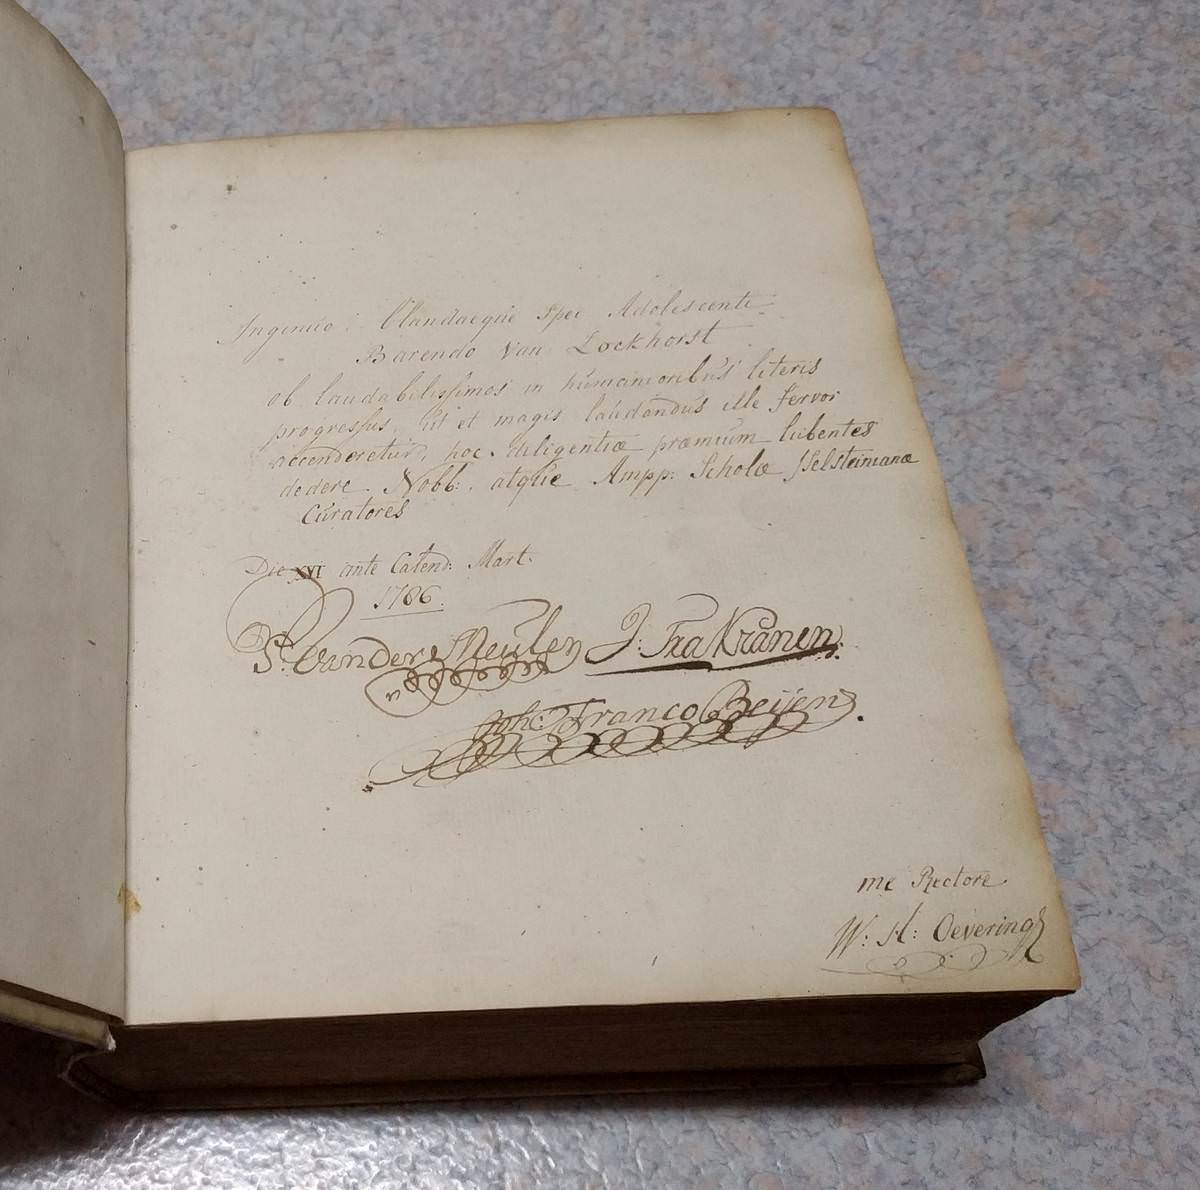 Ingenuo Blandaeque Spei Adolescenti
Barendo Van Lockhorst
ob laudabilissimos in humanioribus literis
progressus, ut et magis laudandus ille fervor
accenderetur, hoc diligentiæ præmium lubentes
dedere Nobb: atque Ampp: Scholæ Ysselsteinianæ
Curatores
Die XVI ante Calend: Mart:
1786.
Vander Meulen J: Fra Kranen
Joh: Franco Beijen
me Rectore
W: H: Oevering